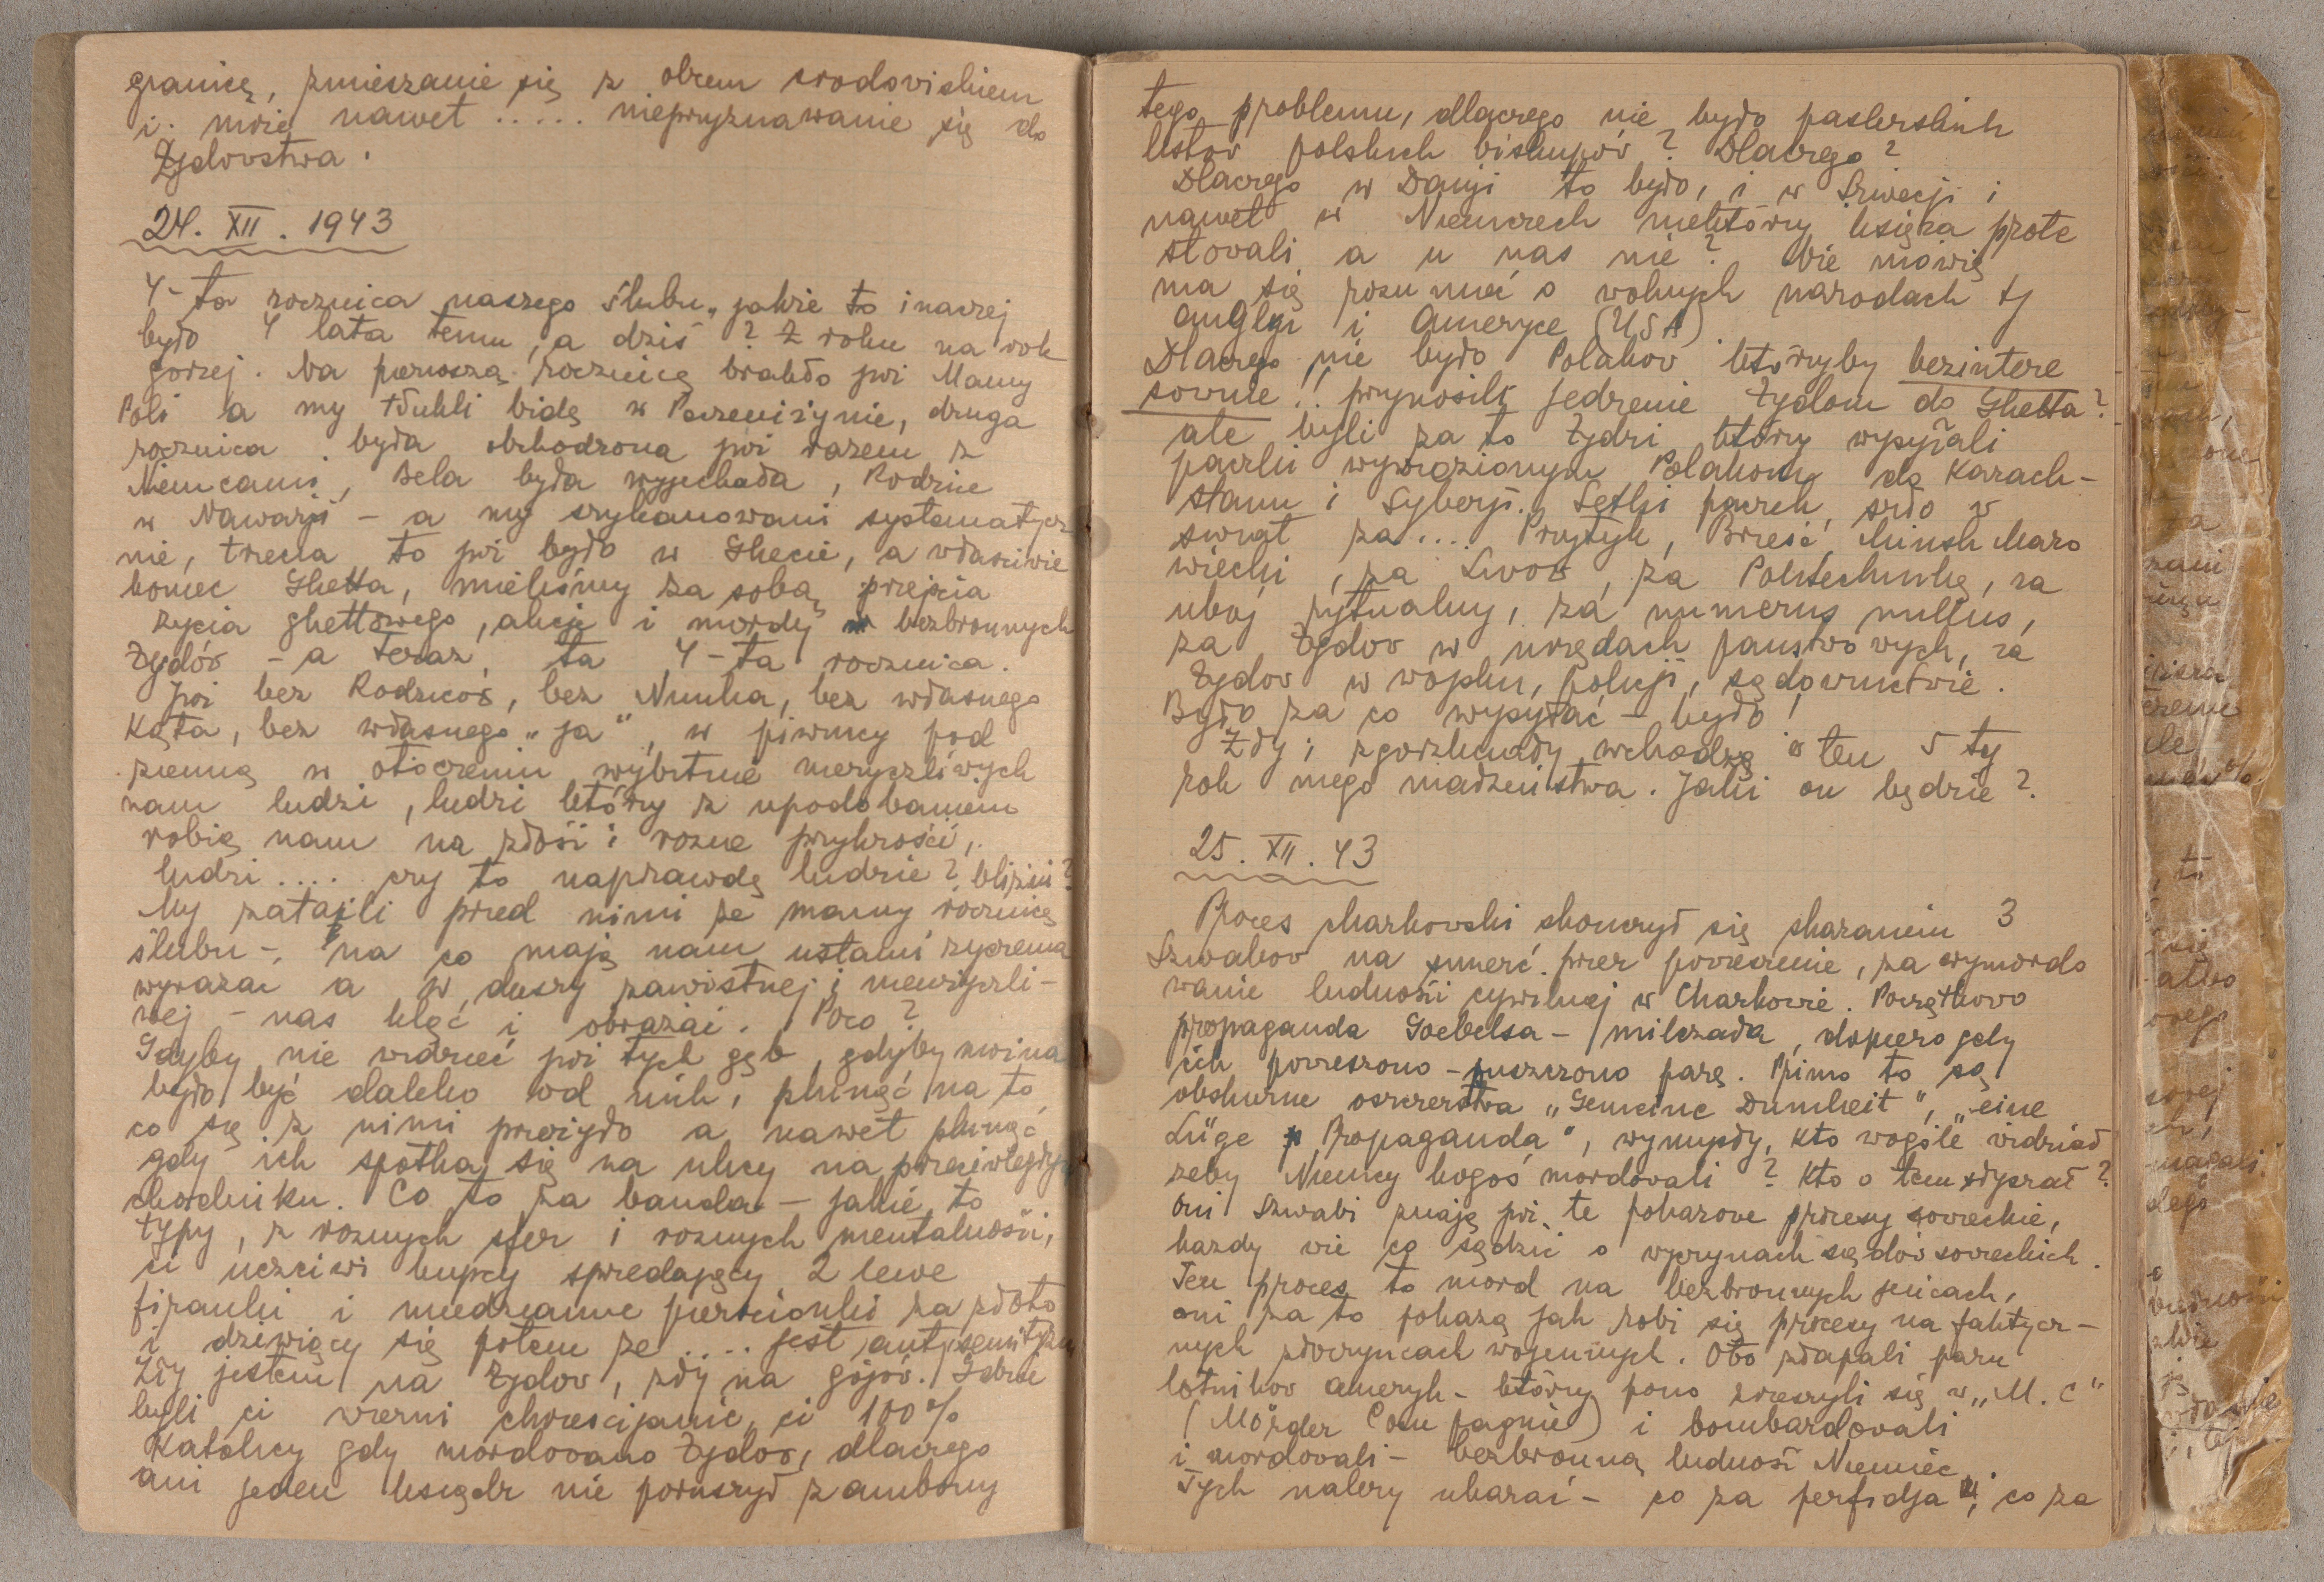 granicę, zmieszanie się z obcem srodoviskiem
i. może nawet ..... nieprzyznawanie się do
Żydovstwa.
24. XII. 1943
4-ta rocznica naszego ślubu, jakże to inaczej
było 4 lata temu, a dziś? Z roku na rok
gorzej. Na pierwszą rocznicę brakło już Mamy
Poli a my tłukli bidę w Peczeniżynie, druga
rocznica była obchodzona już razem z
Niemcami, Bela była wyjechała, Rodzice
w Nawarji - a my szykanowani systematycz
nie, trzecia to już było w Ghecie, a właściwie
koniec Ghetta, mieliśmy za sobą przejścia
życia ghettowego, akcje i mordy bezbronnych
Żydów - a teraz, ta 4-ta rocznica.
Już bez Rodziców, bez Nunka, bez własnego
kąta, bez własnego „ja", w piwnicy pod
ziemią w otoczeniu wybitnie nieżyczliwych
nam ludzi, ludzi którzy z upodobaniem
robią nam na złość i rozne przykrości,
ludzi .... czy to naprawdę ludzie? bliźni?
My zataili pred nimi że mamy rocznicę
ślubu -, na co mają nam ustami zyczenia
wyrazac a w duszy zawistnej i nieżyczli-
wej - nas kląć i obrazać. Poco?
Gdyby nie widzieć już tych gęb, gdyby mozna
było być daleko od nich, plunąć na to
co się z nimi przeżyło a nawet plunąć
gdy ich spotka się na ulicy na przeciwległym
chodniku. Co to za banda - jakie to
typy, z roznych sfer i roznych mentalności,
ci uczciwi kupcy spredający 2 lewe
firanki i miedziane pierscionki za złoto
i dziwiący się potem że .... jest antysemityzm
Zły jestem na Żydov, zły na gojów. Gdzie
byli ci wierni chrześcijanie, ci 100%
Katolicy gdy mordovano Żydov, dlaczego
ani jeden ksiądz nie poruszył z ambony
tego problemu, dlaczego nie było pasterskich
listov polskich biskupów? Dlaczego?
Dlaczego w Danji to było, i w Szwecji i
nawet w Niemczech niektórzy księża prote
stovali a u nas nie? Nie mówię
ma się rozumieć o wolnych narodach tj
Anglji i Ameryce (USA)
Dlaczego nie było Polakov którzyby bezintere
sovnie!! przynosili jedzenie Żydom do Ghetta?
ale byli za to Żydzi którzy wysyłali
paczki wywiezionym Polakom do Kazach-
stanu i Syberji. Setki paczek szło w
swiat za .... Przytyk, Brześć, Minsk Mazo
wiecki, za Lvov, za Politechnikę, za
ubój rytualny, za numerus nullus,
za Żydov w urzędach panstwovych, za
Żydov w wojsku, policji, sądownictwie.
Było za co wysyłać - było!
Zły i zgorzkniały wchodzę w ten 5 ty
rok mego małzeństwa. Jaki on będzie?
25. XII. 43
Proces charkovski skonczył się skazaniem 3
Szwabov na smierć przez povieszenie, za wymordo
wanie ludności cywilnej w Charkovie. Początkovo
propaganda Goebelsa - milczała, dopiero gdy
ich povieszono - puszczono parę. Primo to są
obskurne oszczerstva „Gemeine Dumheit", „eine
Lüge Propaganda", wymysły, kto wogóle widział
zeby Niemcy kogoś mordovali? Kto o tem słyszał?
Oni Szwabi znają już te pokazove procesy sovieckie,
kazdy wie co sądzić o wyczynach sądóv sovieckich.
Ten proces to mord na bezbronnych jeńcach,
oni za to pokazą jak robi się procesy na faktycz-
nych złoczyńcach wojennych. Oto złapali paru
lotnikov ameryk - którzy pono zrzeszyli się w „M. C"
(Mörder Compagnie) i bombardovali
i mordovali - bezbronną ludność Niemiec.
Tych nalezy ukarać - co za perfidja, co za